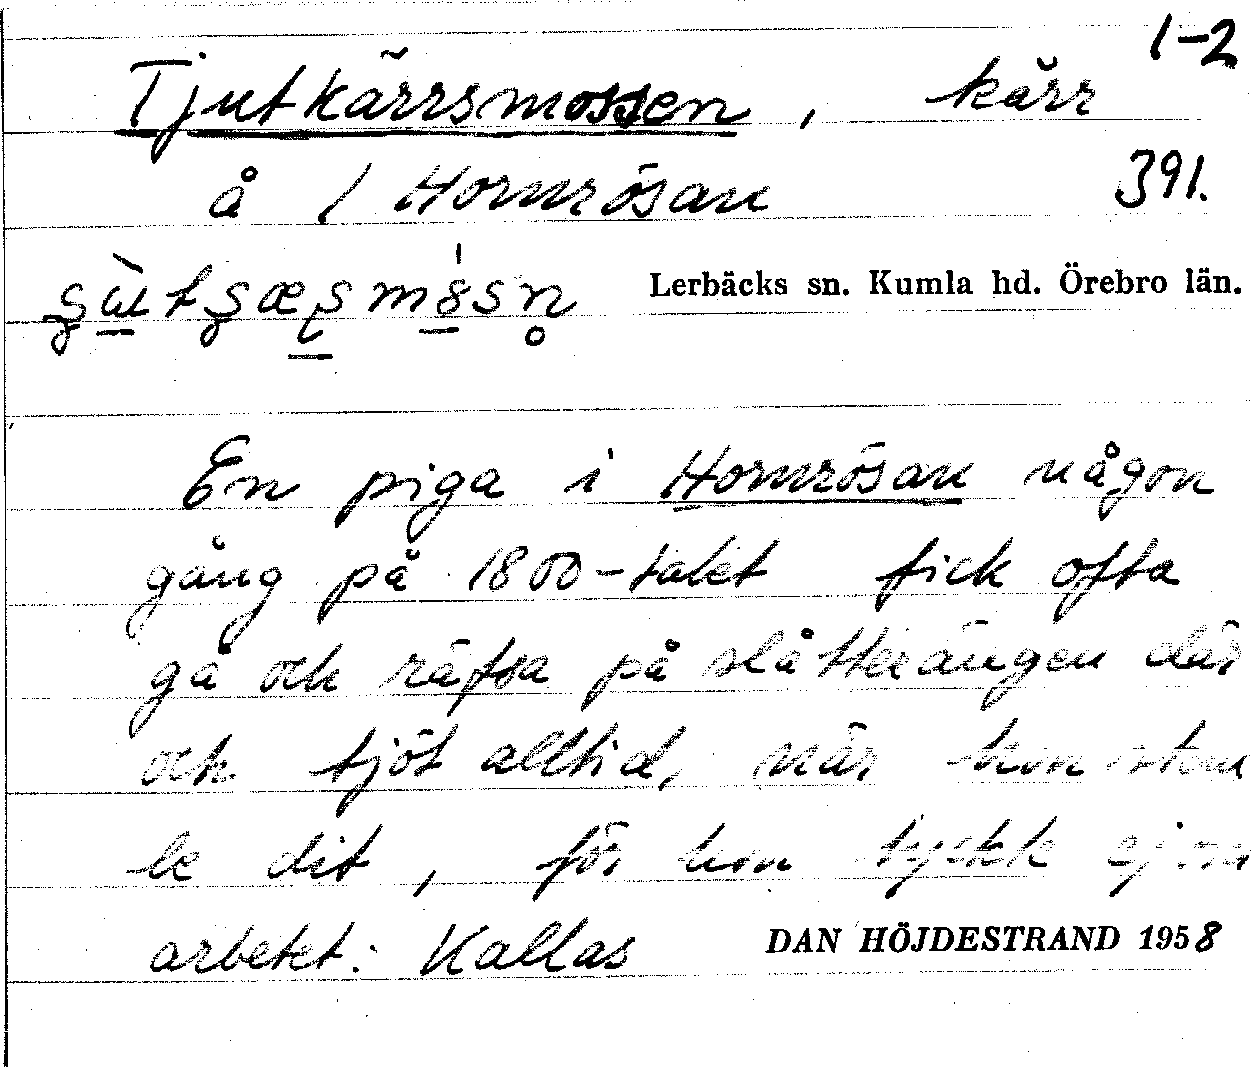 1-2
Tjutkärrsmossen, kärr
å 1 Hornrösan 391.
Lerbäcks sn. Kumla hd. Örebro län.
En piga i Hornrösan någon
gång på 1800-talet fick ofta
gå och räfsa på slåtterängen där
och tjöt alltid, när hon skul
le dit, för hon tyckte ej om
arbetet. Kallas DAN HÖJDESTRAND 1958